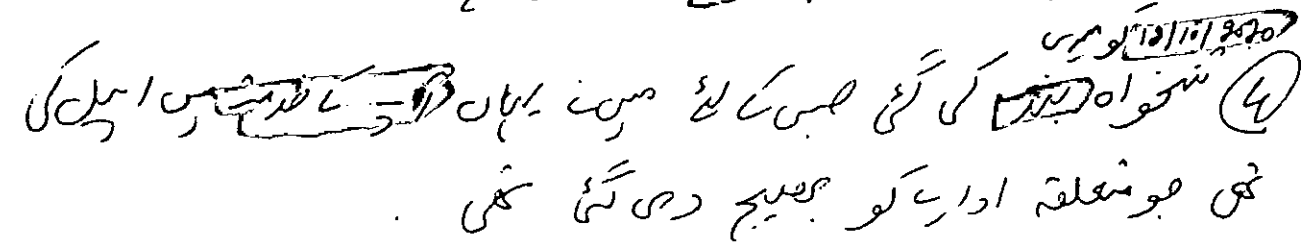 12/10/2020 کو میری
④ تنخواہ بند کی گئی جس کے لئے میں نے یہاں آپ کے خدمت میں اپیل کی
تھی جو متعلقہ ادارے کو بھیج دی گئی تھی .